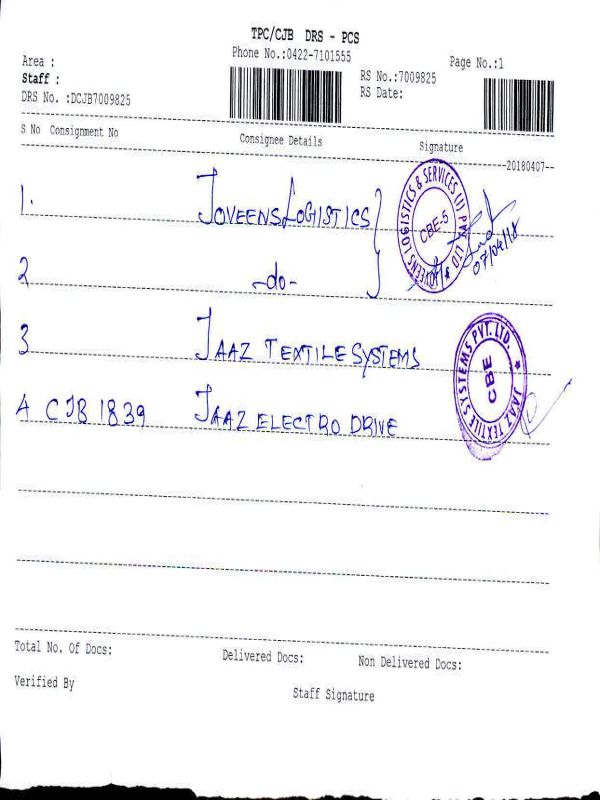 TPC/CJB DRS - PCS
Phone No.:0422-7101555
Page No.:1
Area :
Staff :
DRS No. :DCJB7009825
RS No.:7009825
RS Date:
S No Consignment No Consignee Details Signature
20180407
1. JOVEENS LOGISTICS
JOVEENS LOGISTICS & SERVICES (I) PVT LTD
CBE-5
07/04/18
2 -do-
3 JAAZ TEXTILE SYSTEMS
JAAZ TEXTILE SYSTEMS PVT. LTD.
CBE
4 CJB 1839 JAAZ ELECTRO DRIVE
Total No. Of Docs: Delivered Docs: Non Delivered Docs:
Verified By Staff Signature